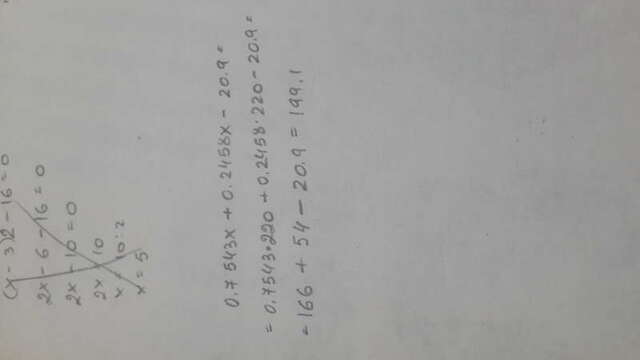 (x-3)2-16=0
2x-6-16=0
2x-10=0
2x 10
x 10:2
x=5
0.7543x+0.2458x-20.9=
=0.7543·220+0.2458·220-20.9=
=166+54-20.9=199.1